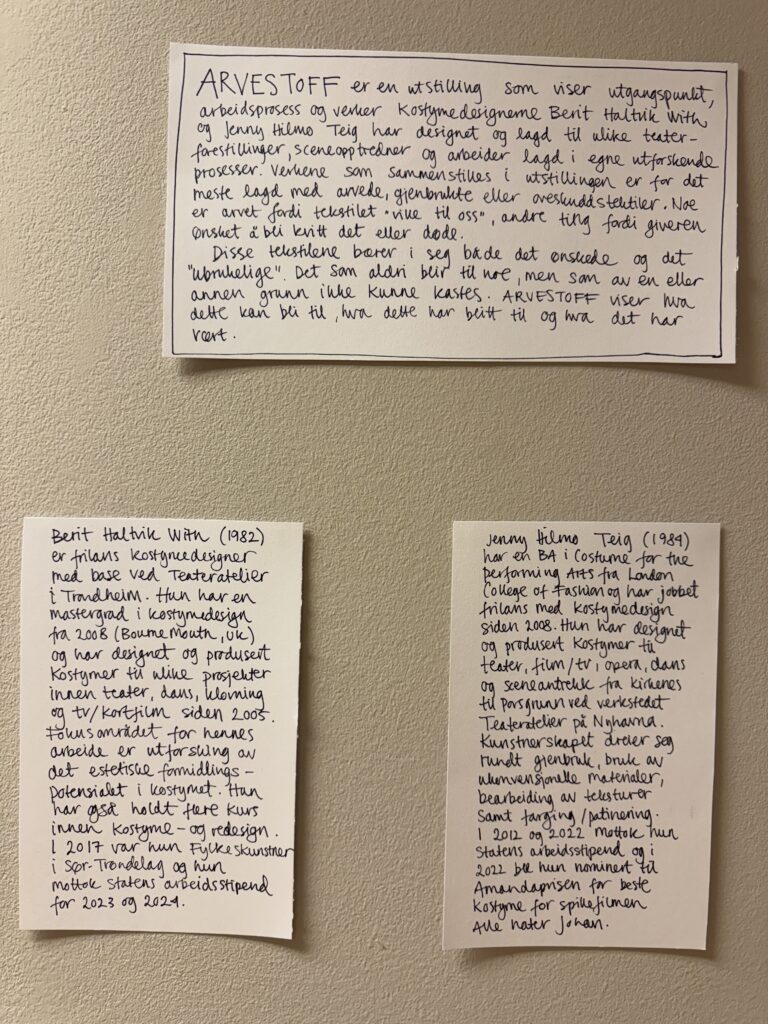 ARVESTOFF er en utstilling som viser utgangspunkt,
arbeidsprosess og verker Kostymedesignerne Berit Haltvik With
og Jenny Hilmo Teig har designet og lagd til ulike teater-
forestillinger, sceneopptredner og arbeider lagd i egne utforskende
prosesser. Verkene som sammenstilles i utstillingen er for det
meste lagd med arvede, gjenbrukte eller overskuddstekstiler. Noe
er arvet fordi tekstilet "ville til oss", andre ting fordi giveren
ønsket å bli kvitt det eller døde.
Disse tekstilene bærer i seg både det ønskede og det
"ubrukelige". Det som aldri blir til noe, men som av en eller
annen grunn ikke kunne kastes. ARVESTOFF viser hva
dette kan bli til, hva dette har blitt til og hva det har
vært.
Berit Haltvik With (1982)
er frilans kostymedesigner
med base ved Teateratelier
i Trondheim. Hun har en
mastergrad i kostymedesign
fra 2008 (Bournemouth, UK)
og har designet og produsert
kostymer til ulike prosjekter
innen teater, dans, klovning
og tv/kortfilm siden 2005.
Fokusområdet for hennes
arbeide er utforsking av
det estetiske formidlings-
potensialet i kostymet. Hun
har også holdt flere kurs
innen kostyme- og redesign.
I 2017 var hun Fylkeskunstner
i Sør-Trøndelag og hun
mottok Statens arbeidsstipend
for 2023 og 2024.
Jenny Hilmo Teig (1984)
har en BA i Costume for the
performing Arts fra London
College of Fashion og har jobbet
frilans med kostymedesign
siden 2008. Hun har designet
og produsert kostymer til
teater, film/tv, opera, dans
og sceneantrekk fra Kirkenes
til Porsgrunn ved verkstedet
Teateratelier på Nyhavna.
Kunstnerskapet dreier seg
rundt gjenbruk, bruk av
ukonvensjonelle materialer,
bearbeiding av teksturer
samt farging/patinering.
I 2012 og 2022 mottok hun
Statens arbeidsstipend og i
2022 ble hun nominert til
Amandaprisen for beste
kostyme for spillefilmen
Alle hater Johan.